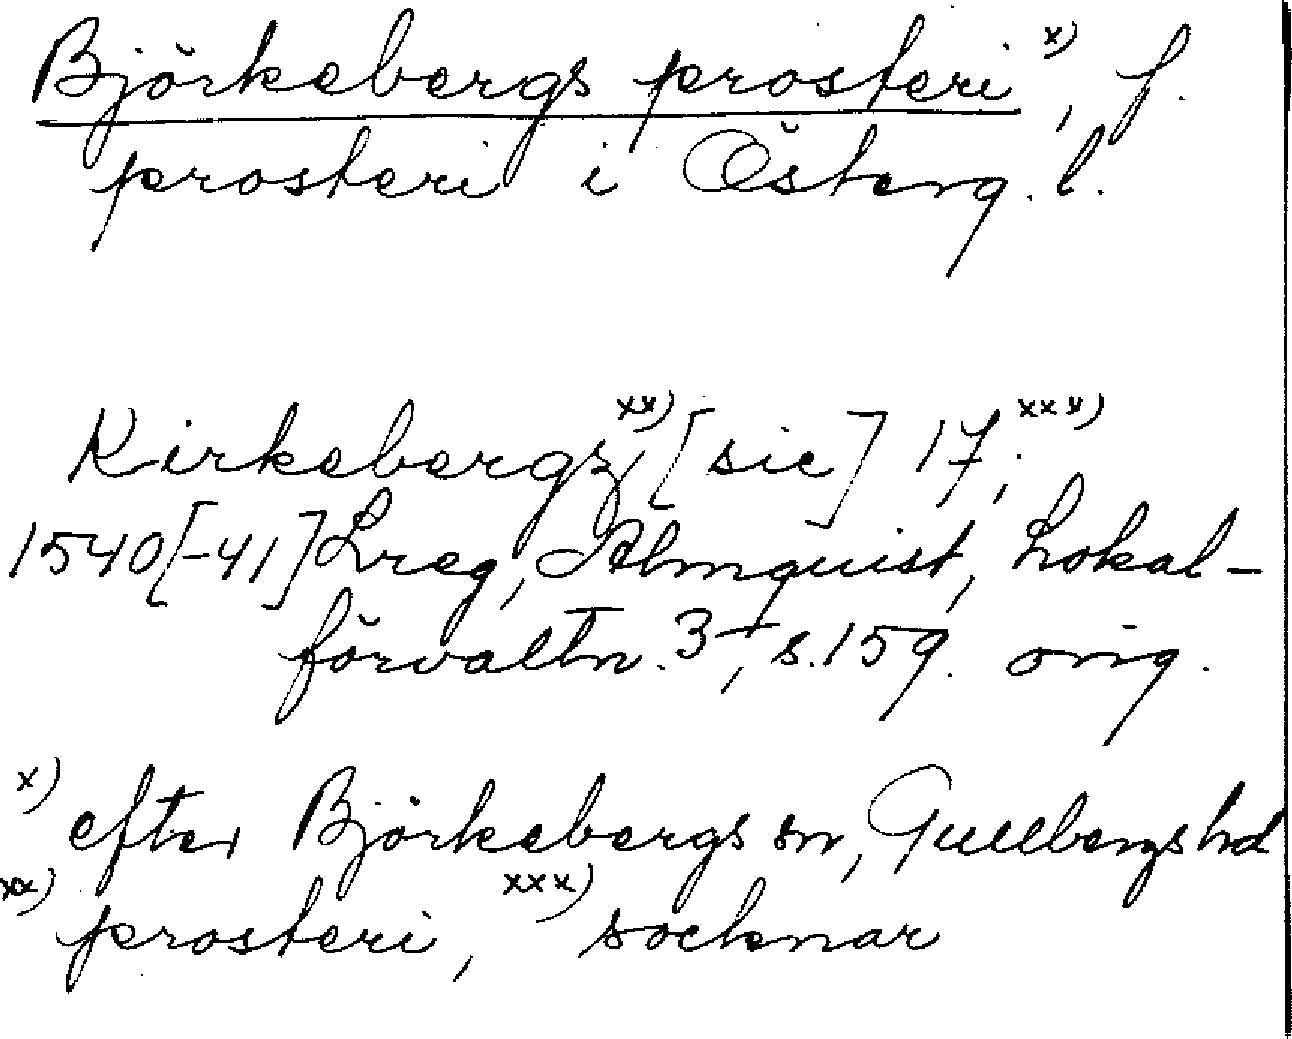 Björkebergs prosteri x), f.
prosteri i Österg. l.
Kirkebergz xx) [sic] 17, xxx)
1540[-41] Lreg, Almquist, Lokal-
förvaltn. 3, s. 159. orig.
x) efter Björkebergs sn, Gullbergs hd
xx) prosteri, xxx) socknar